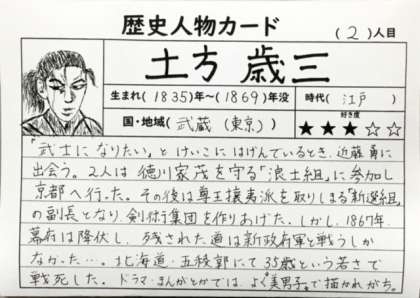 歴史人物カード (2)人目
土方 歳三
生まれ(1835)年~(1869)年没 時代(江戸)
国・地域(武蔵(東京)) 好き度 ★★★☆☆
「武士になりたい」とけいこにはげんでいるとき、近藤勇に
出会う。2人は徳川家茂を守る「浪士組」に参加し
京都へ行った。その後は尊王攘夷派を取りしまる「新選組」
の副長となり、剣術集団を作りあげた。しかし、1867年、
幕府は降伏し、残された道は新政府軍と戦うしか
なかった…。北海道・五稜郭にて35歳という若さで
戦死した。ドラマ・まんがとかでは、よく“美男子”で描かれがち。